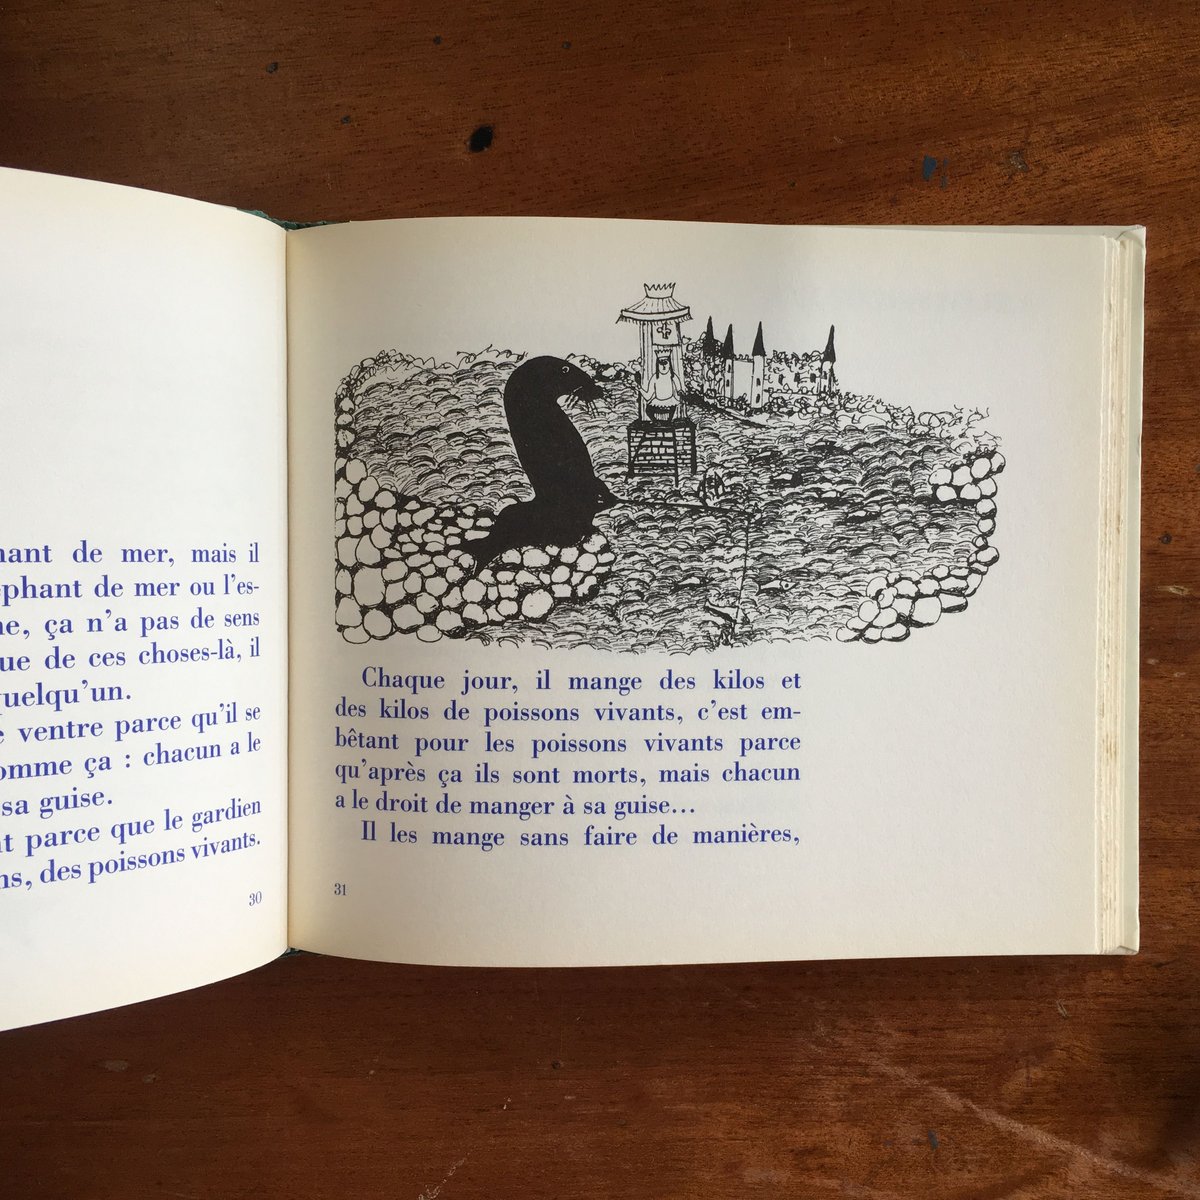 de mer, mais il
de mer ou l'es-
ça n'a pas de sens
de ces choses-là, il
quelqu'un.
ventre parce qu'il se
comme ça : chacun a le
sa guise.
parce que le gardien
des poissons vivants.
30
Chaque jour, il mange des kilos et
des kilos de poissons vivants, c'est em-
bêtant pour les poissons vivants parce
qu'après ça ils sont morts, mais chacun
a le droit de manger à sa guise...
Il les mange sans faire de manières,
31